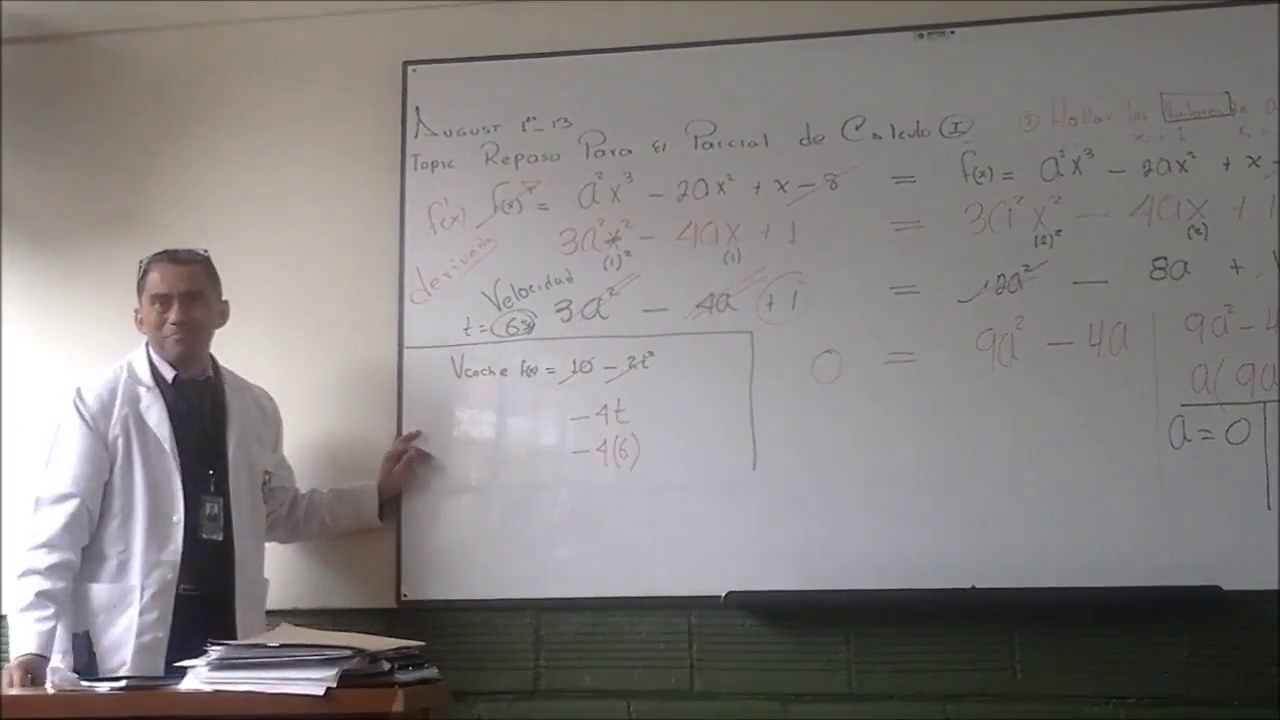 August 1º-13
Topic: Repaso Para El Parcial de Calculo (I)
③ Hallar los Valores de a
x₁ = 1
f'(x) f(x) = a²x³ - 2ax² + x - 8 = f(x) = a²x³ - 2ax² + x
derivada 3a²x² - 4ax + 1 = 3a²x² - 4ax + 1
(1)² (1) (2)² (2)
Velocidad
t = 6s 3a² - 4a + 1 = 12a² - 8a +
0 = 9a² - 4a
9a² - 4
a(9a
a = 0
Vcoche f(x) = 10 - 2t²
-4t
-4(6)